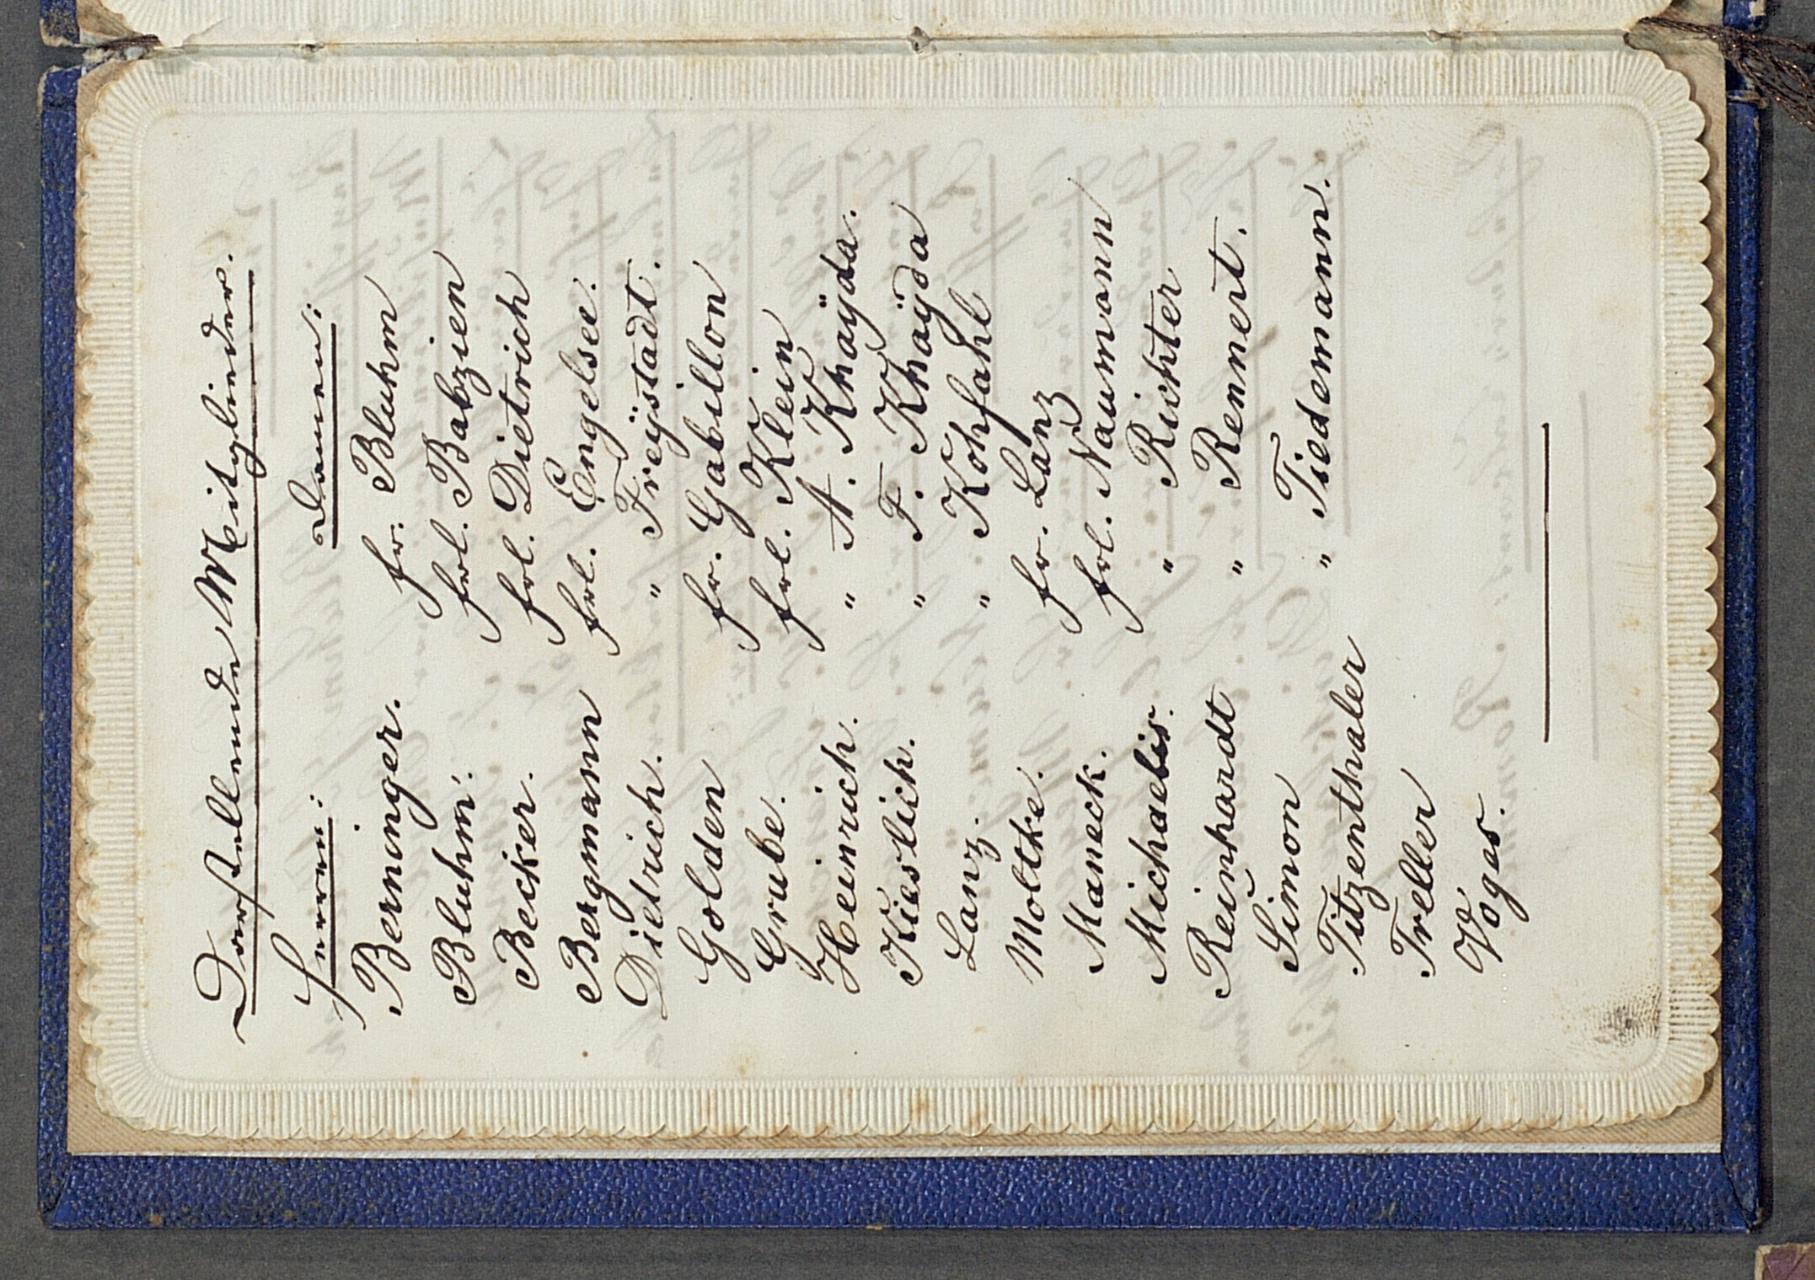 Darstellende Mitglieder.
Herren:
Berninger.
Bluhm.
Becker.
Bergmann
Dietrich.
Golden
Grube.
Heinrich.
Kieslich.
Lanz.
Moltke.
Maneck.
Michaelis.
Reinhardt
Simon
Titzenthaler
Treller
Voges.
Damen:
fr. Bluhm
frl. Babzien
frl. Dietrich
frl. Engelsee.
" Freÿstadt.
fr. Gabillon
frl. Klein
" A. Khaÿda.
" F. Khaÿda
" Kohfahl
fr. Lanz
frl. Naumann
" Richter
" Rennert.
" Tiedemann.